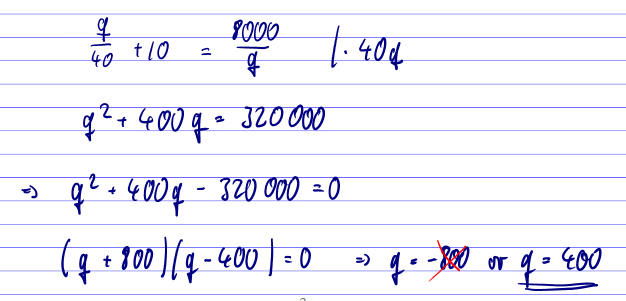 q/40 + 10 = 8000/q   | · 40q
q² + 400q = 320 000
⇒ q² + 400q - 320 000 = 0
(q + 800)(q - 400) = 0 ⇒ q = -800 or q = 400